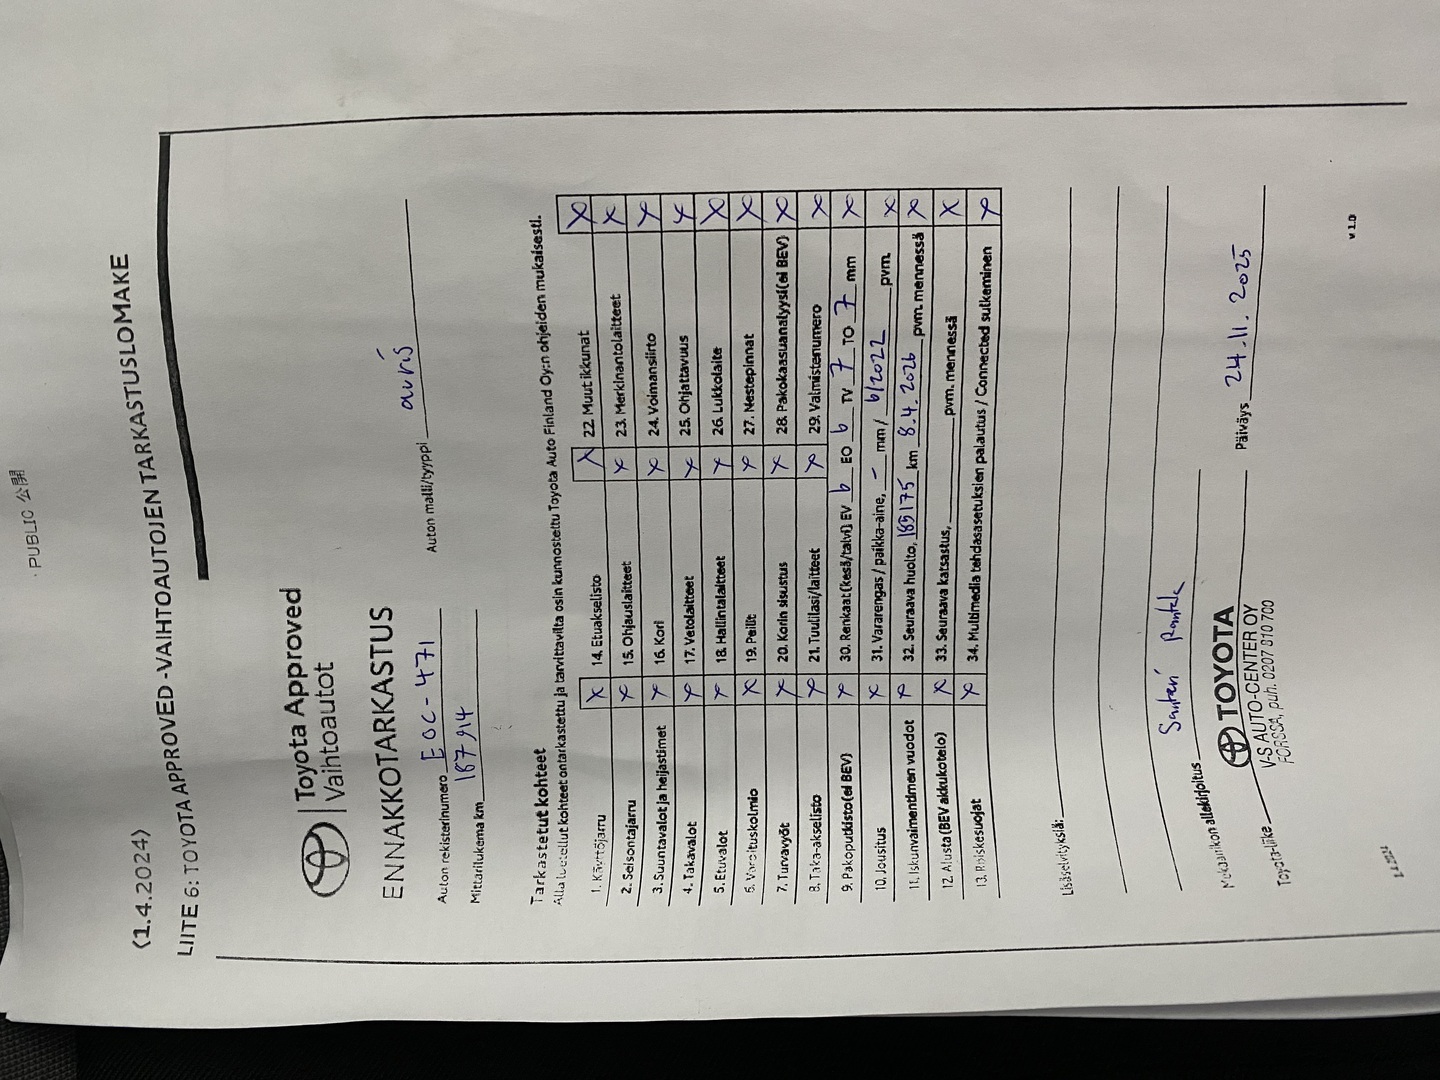 PUBLIC 公開
(1.4.2024)
LIITE 6: TOYOTA APPROVED -VAIHTOAUTOJEN TARKASTUSLOMAKE
Toyota Approved
Vaihtoautot
ENNAKKOTARKASTUS
Auton rekisterinumero EOC-471 Auton malli/tyyppi auris
Mittarilukema km 187914
Tarkastetut kohteet
Alla luetellut kohteet on tarkastettu ja tarvittavilta osin kunnostettu Toyota Auto Finland Oy:n ohjeiden mukaisesti.
1. Käyttöjarru x 14. Etuakselisto x 22. Muut ikkunat x
2. Seisontajarru x 15. Ohjauslaitteet x 23. Merkinantolaitteet x
3. Suuntavalot ja heijastimet x 16. Kori x 24. Voimansiirto x
4. Takavalot x 17. Vetolaitteet x 25. Ohjattavuus x
5. Etuvalot x 18. Hallintalaitteet x 26. Lukkolaite x
6. Varoituskolmio x 19. Peilit x 27. Nestepinnat x
7. Turvavyöt x 20. Korin sisustus x 28. Pakokaasuanalyysi (ei BEV) x
8. Taka-akselisto x 21. Tuulilasi/laitteet x 29. Valmistenumero x
9. Pakoputkisto (ei BEV) x 30. Renkaat (kesä/talvi) EV 6 EO 6 TV 7 TO 7 mm x
10. Jousitus x 31. Vararengas / paikka-aine, - mm / 6/2022 pvm. x
11. Iskunvaimentimen vuodot x 32. Seuraava huolto, 189175 km 8.4.2026 pvm. mennessä x
12. Alusta (BEV akkukotelo) x 33. Seuraava katsastus, pvm. mennessä x
13. Roiskesuojat x 34. Multimedia tehdasasetuksien palautus / Connected sulkeminen x
Lisäselvityksiä:
Santeri Rantala
Mekaanikon allekirjoitus
TOYOTA
Toyota-liike V-S AUTO-CENTER OY Päiväys 24.11.2025
FORSSA, puh. 0207 810 700
1.4.2024 v 1.0